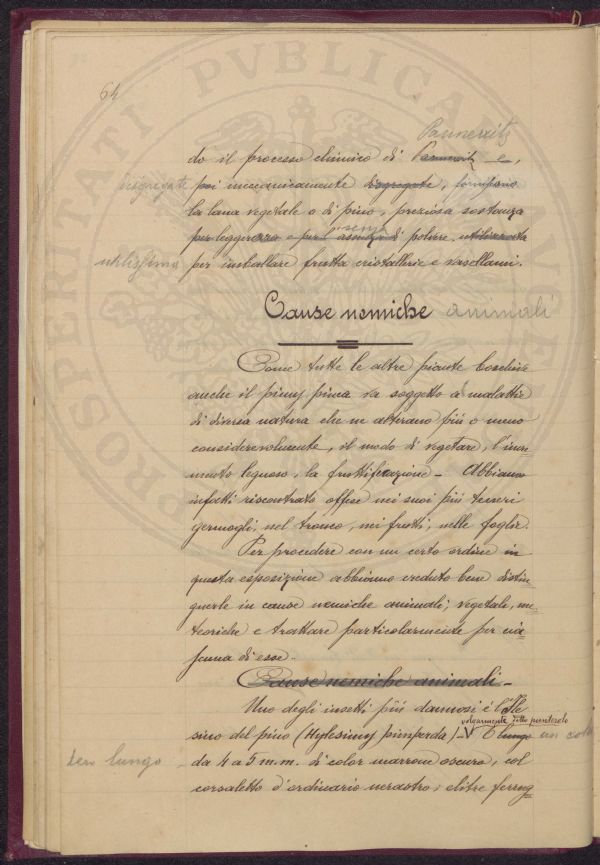 64
Pannewitz
do il processo chimico di Pannewitz e,
disgregate poi meccanicamente disgregate, forniscono
la lana vegetale o di pino, preziosa sostanza
senza
per leggerezza e per l'assenza di polvere utilizzata
utilissima per imballare frutta cristallerie e vasellami.
Cause nemiche animali
Come tutte le altre piante boschive
anche il pinus pinea va soggetto a malattie
di diversa natura che ne alterano più o meno
considerevolmente, il modo di vegetare, l'incre=
mento legnoso, la fruttificazione - Abbiamo
infatti riscontrato offese nei suoi più teneri
germogli, nel tronco, nei frutti, nelle foglie.
Per procedere con un certo ordine in
questa esposizione abbiamo creduto bene distin=
guerle in cause nemiche animali, vegetale, me=
teoriche e trattare particolarmente per cia=
scuna di esse.
Cause nemiche animali -
Uno degli insetti più dannosi è l'Ile=
volgarmente detto punterolo
sino del pino (Hylesinus piniperda) - È lungo un
ero lungo da 4 a 5 m.m. di color marrone oscuro, col
corsaletto d'ordinario nerastro, elitre ferrug=
PROSPERITATI PVBLICAE